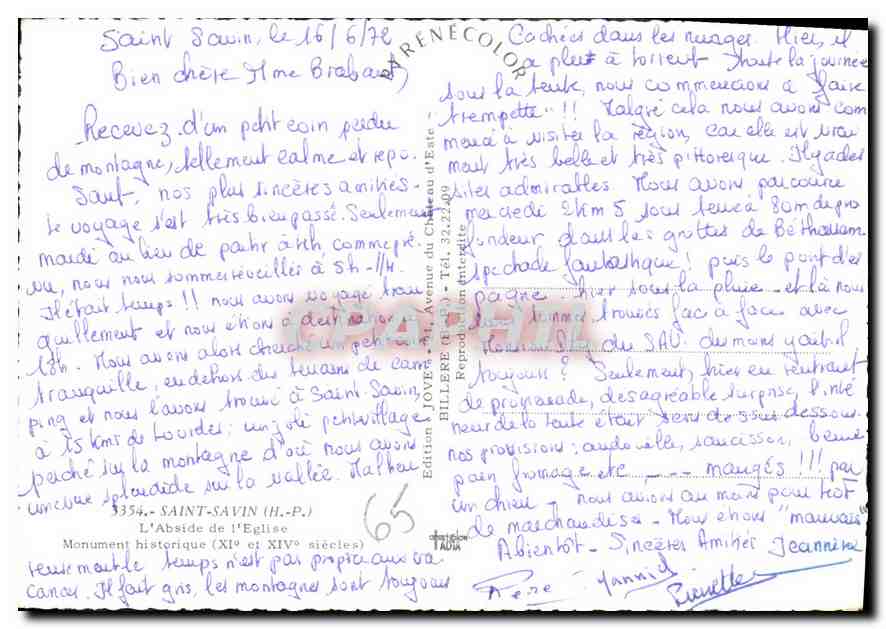 Saint Savin, le 16/6/72
Bien chère Mme Brabant,
Recevez d'un petit coin perdu
de montagne, tellement calme et repo-
sant, nos plus sincères amitiés -
Le voyage s'est très bien passé. Seulement
mardi au lieu de partir à 4h, comme pré-
vu, nous nous sommes réveillés à 5h -1/4.
Il était temps !! nous avons voyagé tran
quillement et nous étions à destination à
18h. Nous avons alors cherché un petit coin
tranquille, en dehors du terrain de cam
ping et nous l'avons trouvé à Saint-Savin,
à 15 kms de Lourdes : un joli petit village
perché sur la montagne d'où nous avons
une vue splendide sur la vallée. Malheu
3354.- SAINT-SAVIN (H.-P.)
L'Abside de l'Eglise
Monument historique (XI° et XIV° siècles)
reusement le temps n'est pas propice aux va
cances. Il fait gris, les montagnes sont toujours
65
PYRENÉCOLOR
Edition « JOVE » - 31, Avenue du Château d'Este
BILLERE (B.-P.) - Tél. 32.22-09
Reproduction interdite
CPAPHIL
Cachées dans les nuages. Hier, il
a plut à torrent toute la journée
sous la tente, nous commencions à "faire
trempette" !! Malgré cela nous avons com
mencé à visiter la région, car elle est vrai
ment très belle et très pittoresque. Il y a des
sites admirables. Nous avons parcouru
mercredi 2km5 sous terre à 80m de pro
fondeur dans les grottes de Bétharram
spectacle fantastique ! puis le pont d'es
pagne. hier sous la pluie - et là nous
nous sommes trouvés face à face avec
Monsieur du SAV. du moins y était-il
toujours ? Seulement, hier en rentrant
de promenade, désagréable surprise, l'inté
rieur de la tente était sens dessus dessous.
nos provisions : andouille, saucisson, beurre
pain fromage etc ---- mangés !!! par
un chien - nous avions au moins pour
de marchandises - Nous étions "mauvais"
A bientôt - Sincères Amitiés Jeannine
Yannick
Pierrette